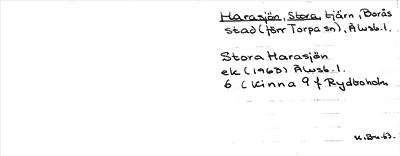 Harasjön, Stora, tjärn, Borås
stad (förr Torpa sn), Älvsb. l.
Stora Harasjön
ek (1963) Älvsb. l.
6 (Kinna 9 f Rydboholm
U. Bn. 63.